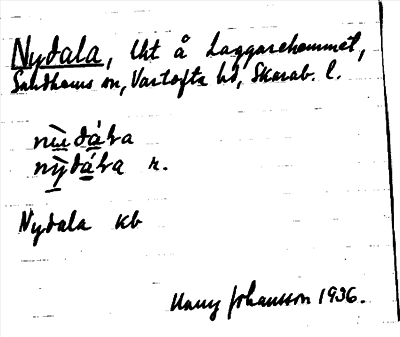 Nydala, lht å Laggarehemmet,
Sandhems sn, Vartofta hd, Skarab. l.
nùdáɫa
nỳdáɫa r.
Nydala kb
Harry Johansson 1936.